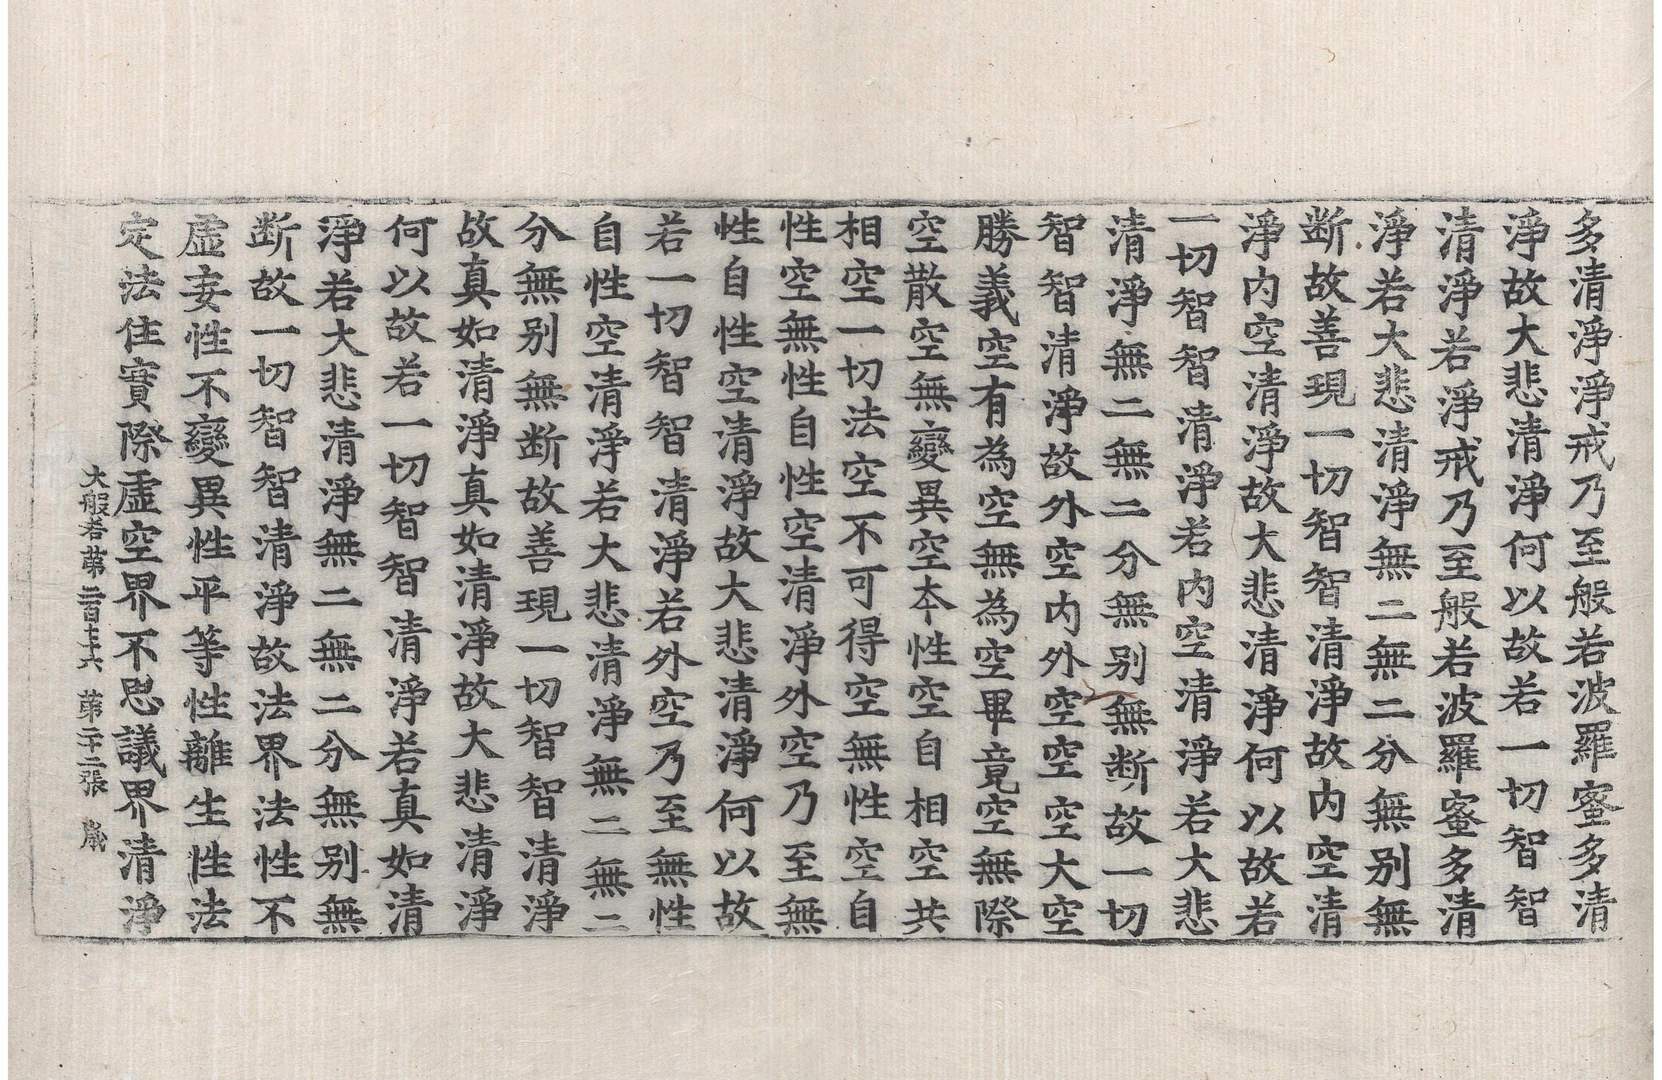 多清淨淨戒乃至般若波羅蜜多清
淨故大悲清淨何以故若一切智智
清淨若淨戒乃至般若波羅蜜多清
淨若大悲清淨無二無二分無別無
断故善現一切智智清淨故內空清
淨內空清淨故大悲清淨何以故若
一切智智清淨若內空清淨若大悲
清淨無二無二分無別無断故一切
智智清淨故外空內外空空空大空
勝義空有為空無為空畢竟空無際
空散空無變異空本性空自相空共
相空一切法空不可得空無性空自
性空無性自性空清淨外空乃至無
性自性空清淨故大悲清淨何以故
若一切智智清淨若外空乃至無性
自性空清淨若大悲清淨無二無二
分無別無断故善現一切智智清淨
故真如清淨真如清淨故大悲清淨
何以故若一切智智清淨若真如清
淨若大悲清淨無二無二分無別無
断故一切智智清淨故法界法性不
虛妄性不變異性平等性離生性法
定法住實際虛空界不思議界清淨
大般若第二百十六 第二十二張 歲